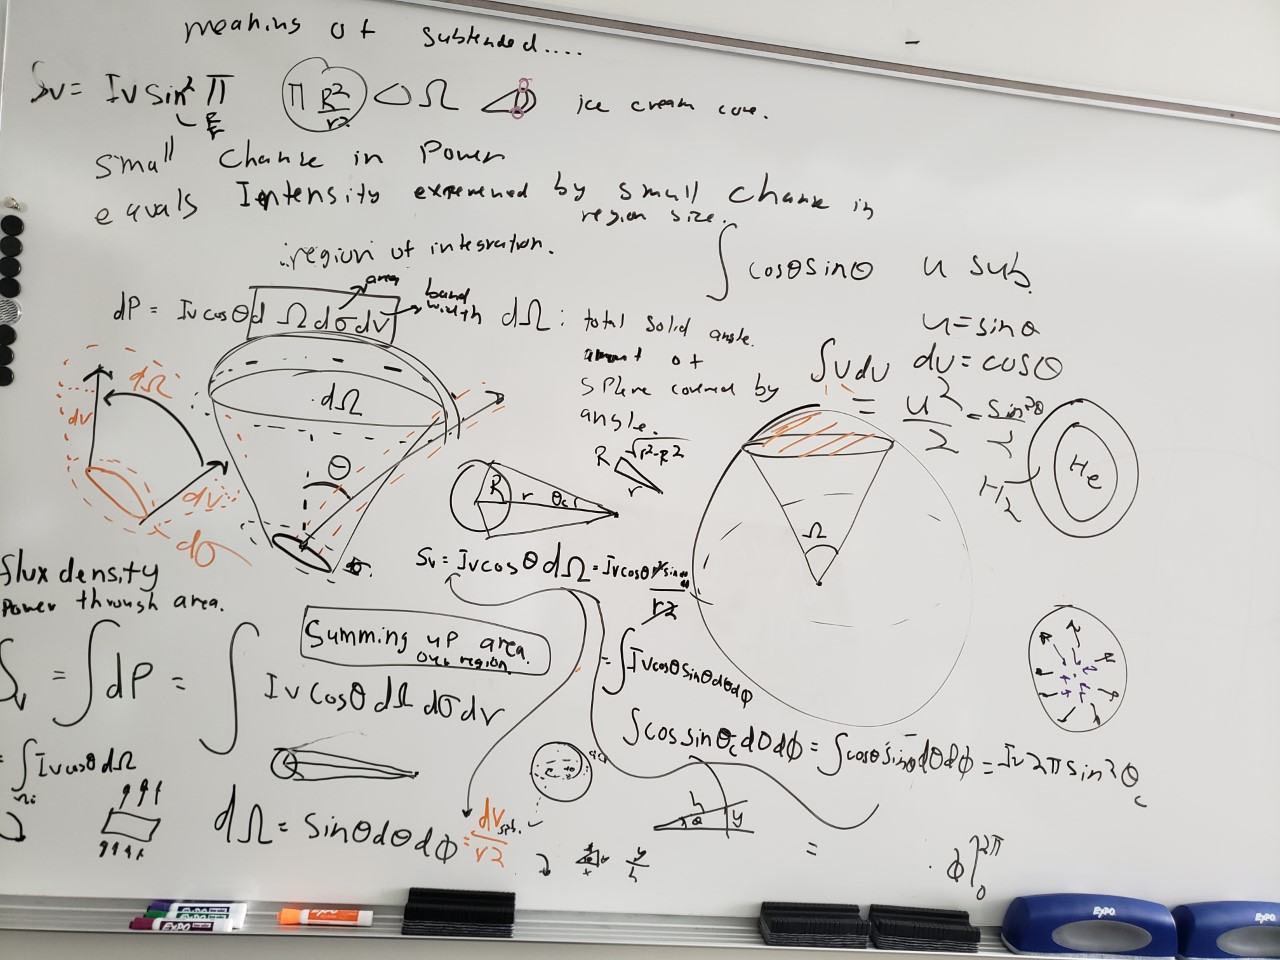 meaning of subtended....
Sν = Iν sin² π R/r
π R²/r² Ω ice cream cone.
small change in Power
equals Intensity experienced by small change in
region size.
region of integration.
∫ cosθ sinθ u sub.
area
band width
dP = Iν cosθ dΩ dσ dν
dΩ: total solid angle.
amount of
sphere covered by
angle.
u = sinθ
∫ u du du = cosθ
= u²/2 = sin²θ/2
dΩ
dν
dν
dσ
dΩ
θ
R r θc r
R √r²-R²
r
Ω
He
H2
flux density
Power through area.
Sν = Iν cosθ dΩ = Iν cosθ
r²
Summing up area.
over region.
= ∫ Iν cosθ sinθ dθ dφ
Sν = ∫ dP = ∫ Iν cosθ dΩ dσ dν
∫ cos sin θc dθ dφ = ∫ cosθ sinθ dθ dφ = Iν 2π sin²θc
= ∫ Iν cosθ dΩ
Ωi
dΩ = sinθ dθ dφ = dV sph. / r²
h θ y
y/h
=
φ |₀²π
EXPO
EXPO
EXPO
EXPO